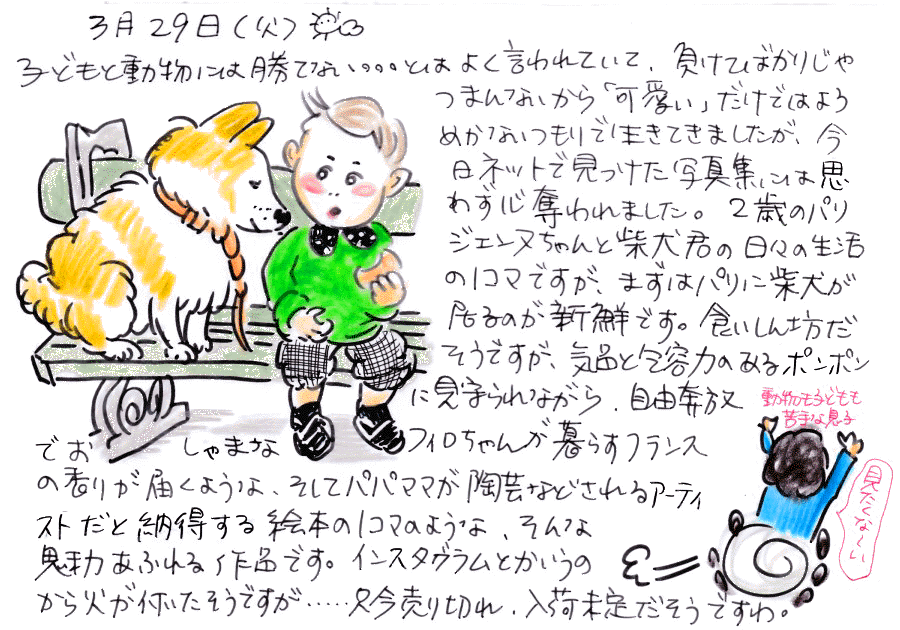 3月29日(火)
子どもと動物には勝てない。。。とはよく言われていて、負けてばかりじゃ
つまんないから「可愛い」だけではよろ
めかないつもりで生きてきましたが、今
日ネットで見つけた写真集には思
わず心奪われました。2歳のパリ
ジェンヌちゃんと柴犬君の日々の生活
の1コマですが、まずはパリに柴犬が
居るのが新鮮です。食いしん坊だ
そうですが、気品と包容力のあるポンポン
に見守られながら、自由奔放
でおしゃまなフィロちゃんが暮らすフランス
の香りが届くような、そしてパパママが陶芸などされるアーティ
ストだと納得する絵本の1コマのような、そんな
魅力あふれる作品です。インスタグラムとかいうの
から火が付いたそうですが……只今売り切れ、入荷未定だそうですわ。
動物も子どもも
苦手な息子
見たくな〜い